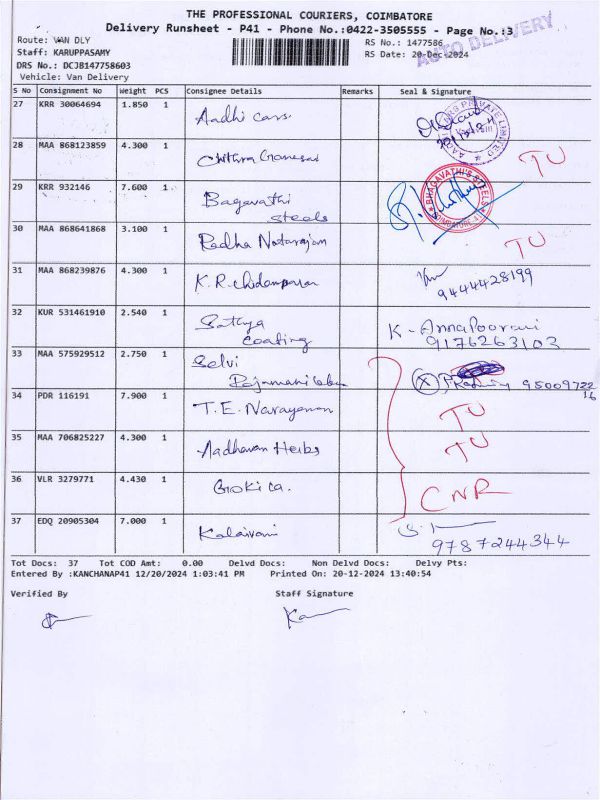 THE PROFESSIONAL COURIERS, COIMBATORE
Delivery Runsheet - P41 - Phone No.:0422-3505555 - Page No.:3
Route: VAN DLY
RS No.: 1477586
AUTO DELIVERY
Staff: KARUPPASAMY
RS Date: 20-Dec-2024
DRS No.: DCJB147758603
Vehicle: Van Delivery
S No Consignment No Weight PCS Consignee Details Remarks Seal & Signature
27 KRR 30064694 1.850 1 Aadhi Cars
28 MAA 868123859 4.300 1 Chithra Ganesan TU
29 KRR 932146 7.600 1 Bagavathi steels BHAGAVATHI'S STEELS
30 MAA 868641868 3.100 1 Radha Natarajan TU
31 MAA 868239876 4.300 1 K.R.Chidamparan 9444428199
32 KUR 531461910 2.540 1 Sathya coating K-Annapoorani 9176263103
33 MAA 575929512 2.750 1 Selvi
34 PDR 116191 7.900 1 T.E. Narayanan TU
35 MAA 706825227 4.300 1 Aadhavan Herbs TU
36 VLR 3279771 4.430 1 Gokica. CNR
37 EDQ 20905304 7.000 1 Kalaivani 9787244344
Tot Docs: 37 Tot COD Amt: 0.00 Delvd Docs: Non Delvd Docs: Delvy Pts:
Entered By :KANCHANAP41 12/20/2024 1:03:41 PM Printed On: 20-12-2024 13:40:54
Verified By Staff Signature